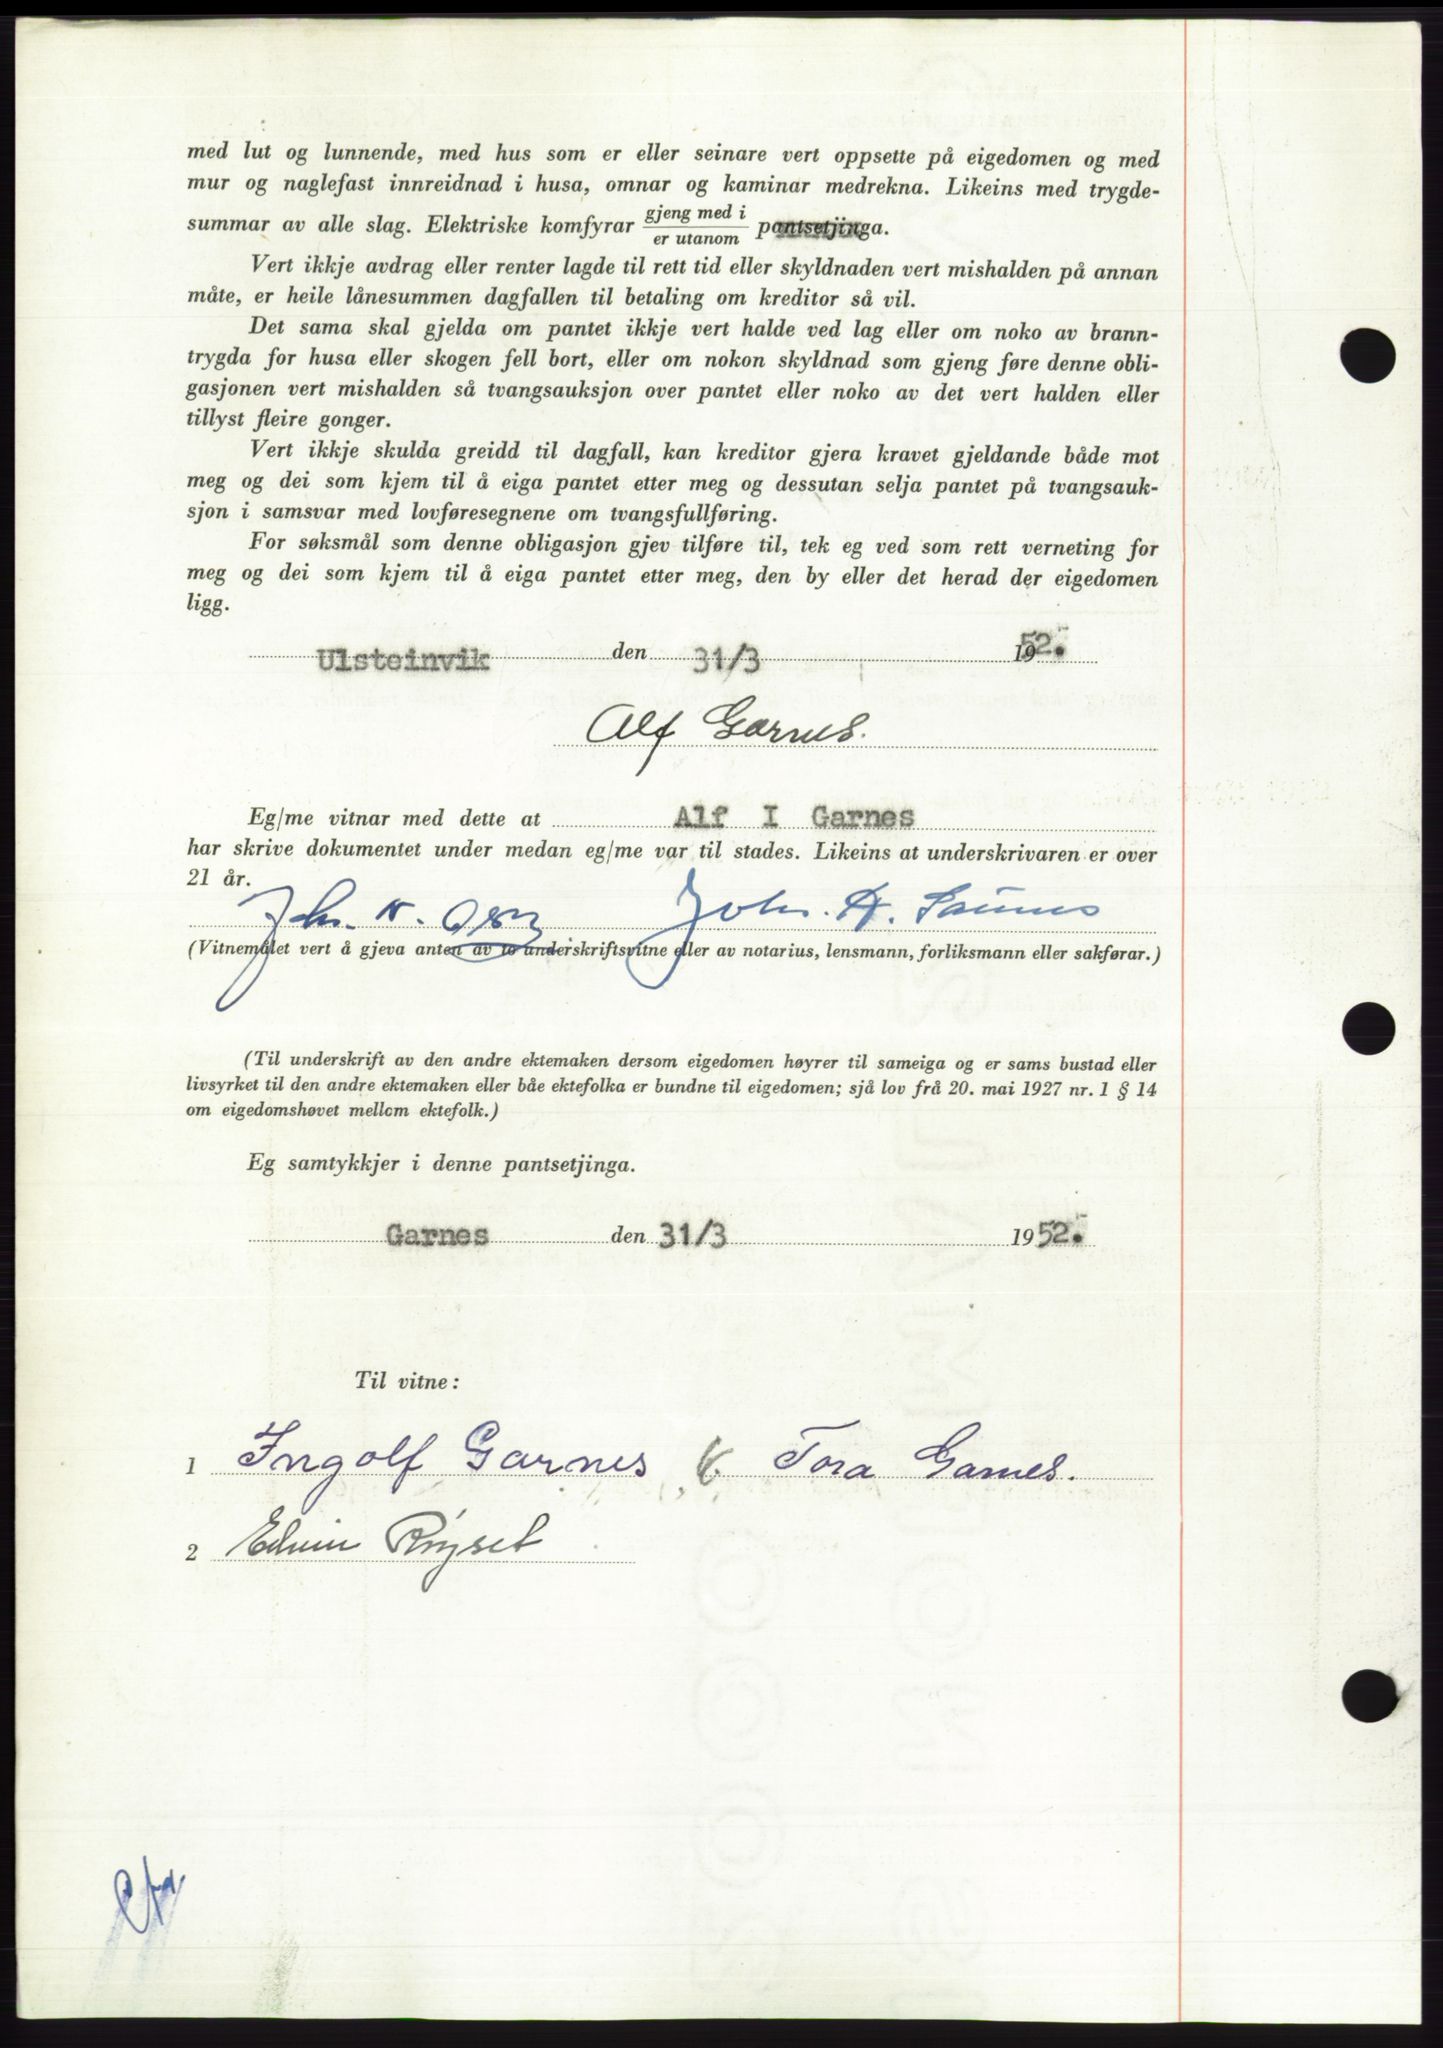 med lut og lunnende, med hus som er eller seinare vert oppsette på eigedomen og med
mur og naglefast innreidnad i husa, omnar og kaminar medrekna. Likeins med trygde-
summar av alle slag. Elektriske komfyrar gjeng med i / er utanom pantsetjinga.
Vert ikkje avdrag eller renter lagde til rett tid eller skyldnaden vert mishalden på annan
måte, er heile lånesummen dagfallen til betaling om kreditor så vil.
Det sama skal gjelda om pantet ikkje vert halde ved lag eller om noko av brann-
trygda for husa eller skogen fell bort, eller om nokon skyldnad som gjeng føre denne obli-
gasjonen vert mishalden så tvangsauksjon over pantet eller noko av det vert halden eller
tillyst fleire gonger.
Vert ikkje skulda greidd til dagfall, kan kreditor gjera kravet gjeldande både mot
meg og dei som kjem til å eiga pantet etter meg og dessutan selja pantet på tvangsauk-
sjon i samsvar med lovføresegnene om tvangsfullføring.
For søksmål som denne obligasjon gjev tilføre til, tek eg ved som rett verneting for
meg og dei som kjem til å eiga pantet etter meg, den by eller det herad der eigedomen
ligg.
Ulsteinvik den 31/3 1952.
Alf Garnes.
Eg/me vitnar med dette at Alf I Garnes
har skrive dokumentet under medan eg/me var til stades. Likeins at underskrivaren er over
21 år.
Joh. A.
(Vitnemålet vert å gjeva anten av to underskriftsvitne eller av notarius, lensmann, forliksmann eller sakførar.)
(Til underskrift av den andre ektemaken dersom eigedomen høyrer til sameiga og er sams bustad eller
livsyrket til den andre ektemaken eller båe ektefolka er bundne til eigedomen; sjå lov frå 20. mai 1927 nr. 1 § 14
om eigedomshøvet mellom ektefolk.)
Eg samtykkjer i denne pantsetjinga.
Garnes den 31/3 1952.
Til vitne:
1 Ingolf Garnes Tora Garnes.
2 Edvin Røyset